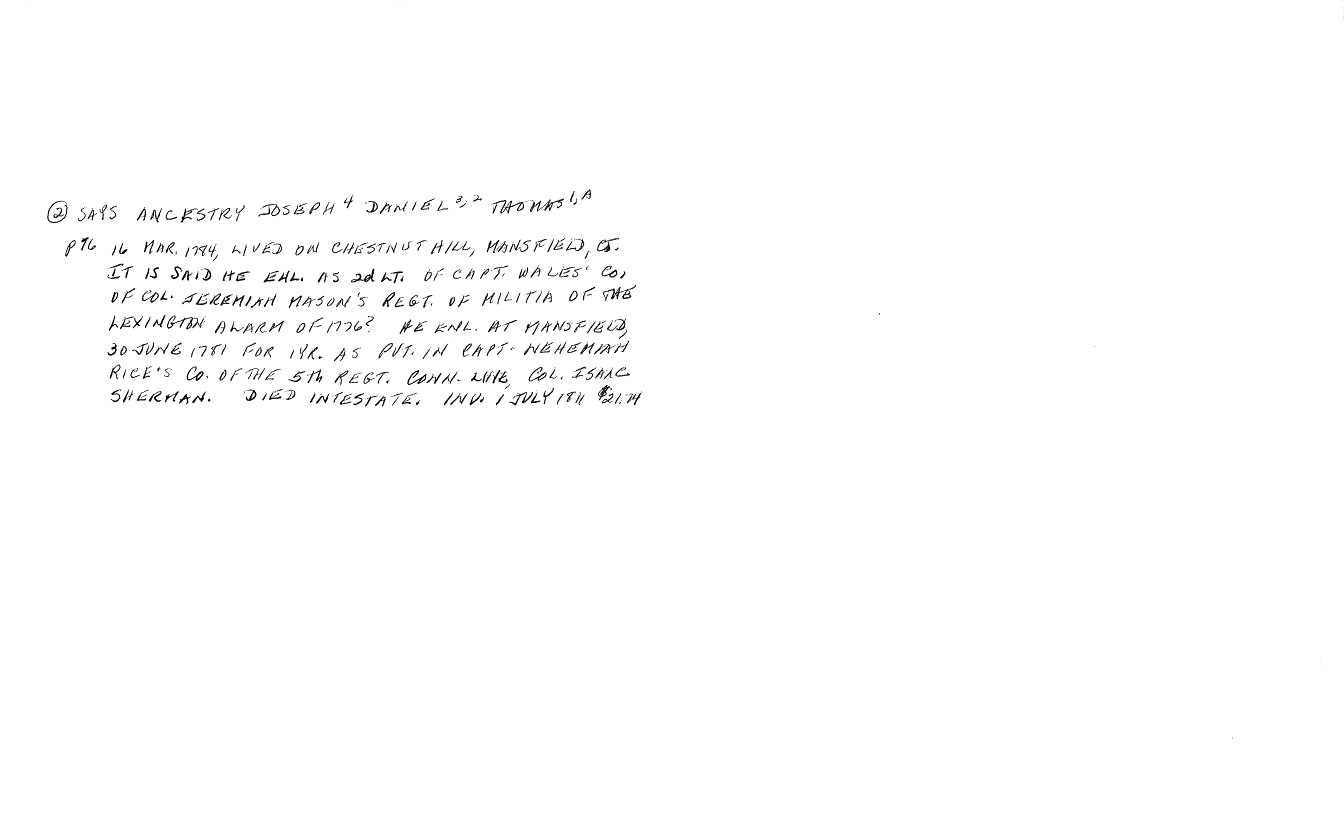 ② SAYS ANCESTRY JOSEPH⁴ DANIEL³,² THOMAS¹,ᴬ
p 96 16 MAR. 1784, LIVED ON CHESTNUT HILL, MANSFIELD, CT.
IT IS SAID HE ENL. AS 2d LT. OF CAPT. WALES' CO.
OF COL. JEREMIAH MASON'S REGT. OF MILITIA OF THE
LEXINGTON ALARM OF 1776? HE ENL. AT MANSFIELD,
30 JUNE 1781 FOR 1 YR. AS PVT. IN CAPT. NEHEMIAH
RICE'S CO. OF THE 5th REGT. CONN. LINE, COL. ISAAC
SHERMAN. DIED INTESTATE. INV. 1 JULY 1811 $21.74